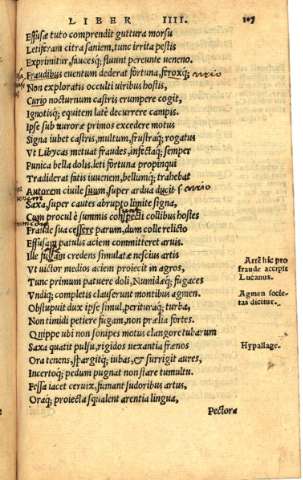 LIBER IIII. 107
Effusæ tuto comprendit guttura morsu
Letiferam citra saniem, tunc irrita pestis
Exprimitur, faucesq; fluunt pereunte ueneno.
Fraudibus euentum dederat fortuna, feroxq;
Non exploratis occulti uiribus hostis,
Curio nocturnum castris erumpere cogit,
Ignotisq; equitem late decurrere campis.
Ipse sub auroræ primos excedere motus
Signa iubet castris, multum, frustraq; rogatus
Vt Libycas metuat fraudes, infectaq; semper
Punica bella dolis. leti fortuna propinqui
Tradiderat fatis iuuenem, bellumq; trahebat
Autorem ciuile suum, super ardua ducit
Saxa, super cautes abrupto limite signa,
Cum procul è summis conspecti collibus hostes
Fraude sua cessere parum, dum colle relicto
Effusam patulis aciem committeret aruis.
Ille fugam credens simulatæ nescius artis
Vt uictor medios aciem proiecit in agros,
Tunc primum patuere doli, Numidæq; fugaces
Vndiq; completis clauserunt montibus agmen.
Obstupuit dux ipse simul, perituraq; turba,
Non timidi petiere fugam, non prælia fortes.
Quippe ubi non sonipes motus clangore tubarum
Saxa quatit pulsu, rigidos uexantia frænos
Ora tenens, spargitq; iubas, & surrigit aures,
Incertoq; pedum pugnat non stare tumultu.
Fessa iacet ceruix, fumant sudoribus artus,
Oraq; proiecta squalent arentia lingua,
Pectora
Arte hîc pro
fraude accipit
Lucanus.
Agmen socie-
tas dicitur.
Hypallage.